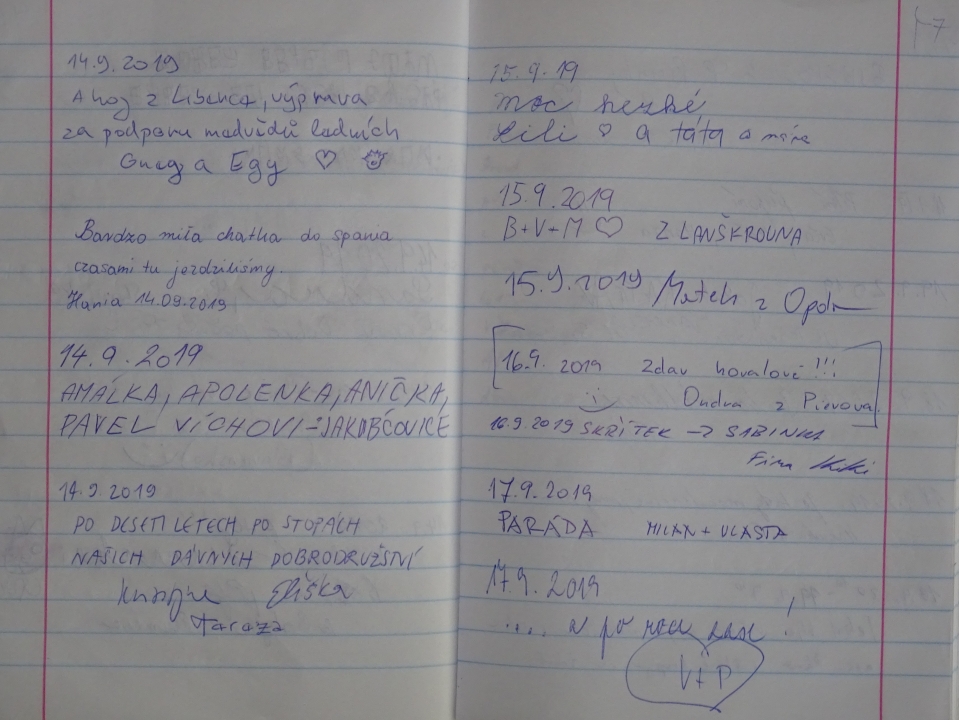 14.9.2019
Ahoj z Liberca, výprava
za podporu medvědů ledních
a Egy ♡
Bardzo miła chatka do spania
czasami tu jezdziliśmy.
Hania 14.09.2019
14.9.2019
AMÁLKA, APOLENKA, ANIČKA,
PAVEL VÍCHOVI - JAKUBČOVICE
14.9.2019
PO DESETI LETECH PO STOPÁCH
NAŠICH DÁVNÝCH DOBRODRUŽSTVÍ
Eliška
15.9.19
moc hezké
Lili ♡ a táta a máma
15.9.2019
B+V+M ♡ Z LANŠKROUNA
15.9.2019 Matěh z
16.9. 2019 Zdav hovalové!!!
:) Ondra z
16.9.2019 SKŘÍTEK → SABINKA
Kiki
17.9.2019
PARÁDA MILAN + VLASTA
17.9.2019
.... a po roce zase!
V+P